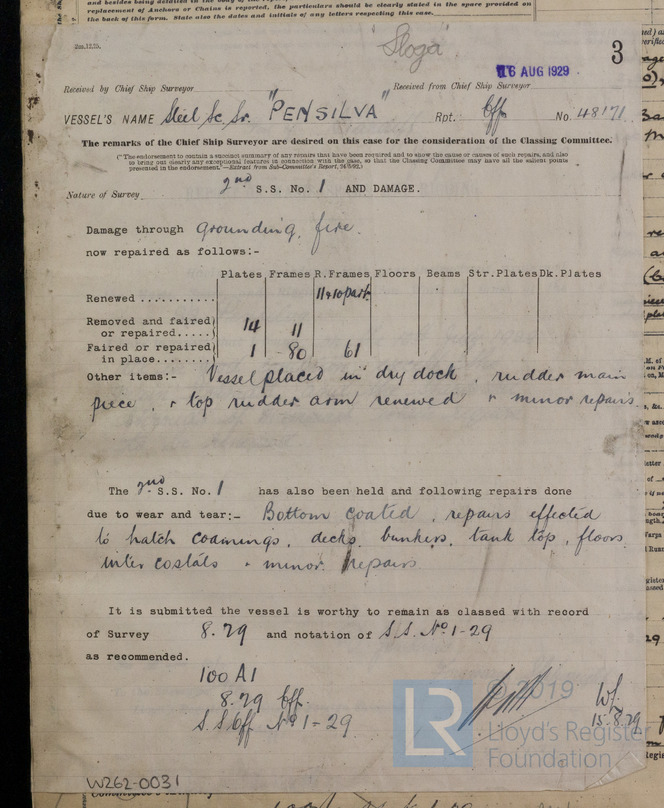 and besides being detailed in the body of the report
replacement of Anchors or Chains is reported, the particulars should be clearly stated in the space provided on
the back of this form. State also the dates and initials of any letters respecting this case.
2m,12,25.
"Sloga"
3
16 AUG 1929
Received by Chief Ship Surveyor
Received from Chief Ship Surveyor
VESSEL'S NAME Steel Sc Sr. "PENSILVA" Rpt. Gff No. 48171
The remarks of the Chief Ship Surveyor are desired on this case for the consideration of the Classing Committee.
(" The endorsement to contain a succinct summary of any repairs that have been required and to show the cause or causes of such repairs, and also
to bring out clearly any exceptional features in connection with the case, so that the Classing Committee may have all the salient points
presented in the endorsement."—Extract from Sub-Committee's Report,
Nature of Survey 2nd S.S. No. 1 AND DAMAGE.
Damage through grounding, fire.
now repaired as follows:-
Plates Frames R.Frames Floors Beams Str.Plates Dk.Plates
Renewed .......... 11+10part
Removed and faired
or repaired..... 14 11
Faired or repaired
in place........ 1 80 61
Other items:- Vessel placed in dry dock, rudder main
piece, + top rudder arm renewed + minor repairs.
The 2nd S.S. No. 1 has also been held and following repairs done
due to wear and tear:- Bottom coated, repairs effected
to hatch coamings, decks, bunkers, tank top, floors
inter costals + minor repairs
It is submitted the vessel is worthy to remain as classed with record
of Survey 8.29 and notation of S.S. No 1-29
as recommended.
100 A1
8.29 Gff.
S.S. Gff No 1-29
15.8.29
© 2019
LR
Lloyd's Register
Foundation
W262-0031